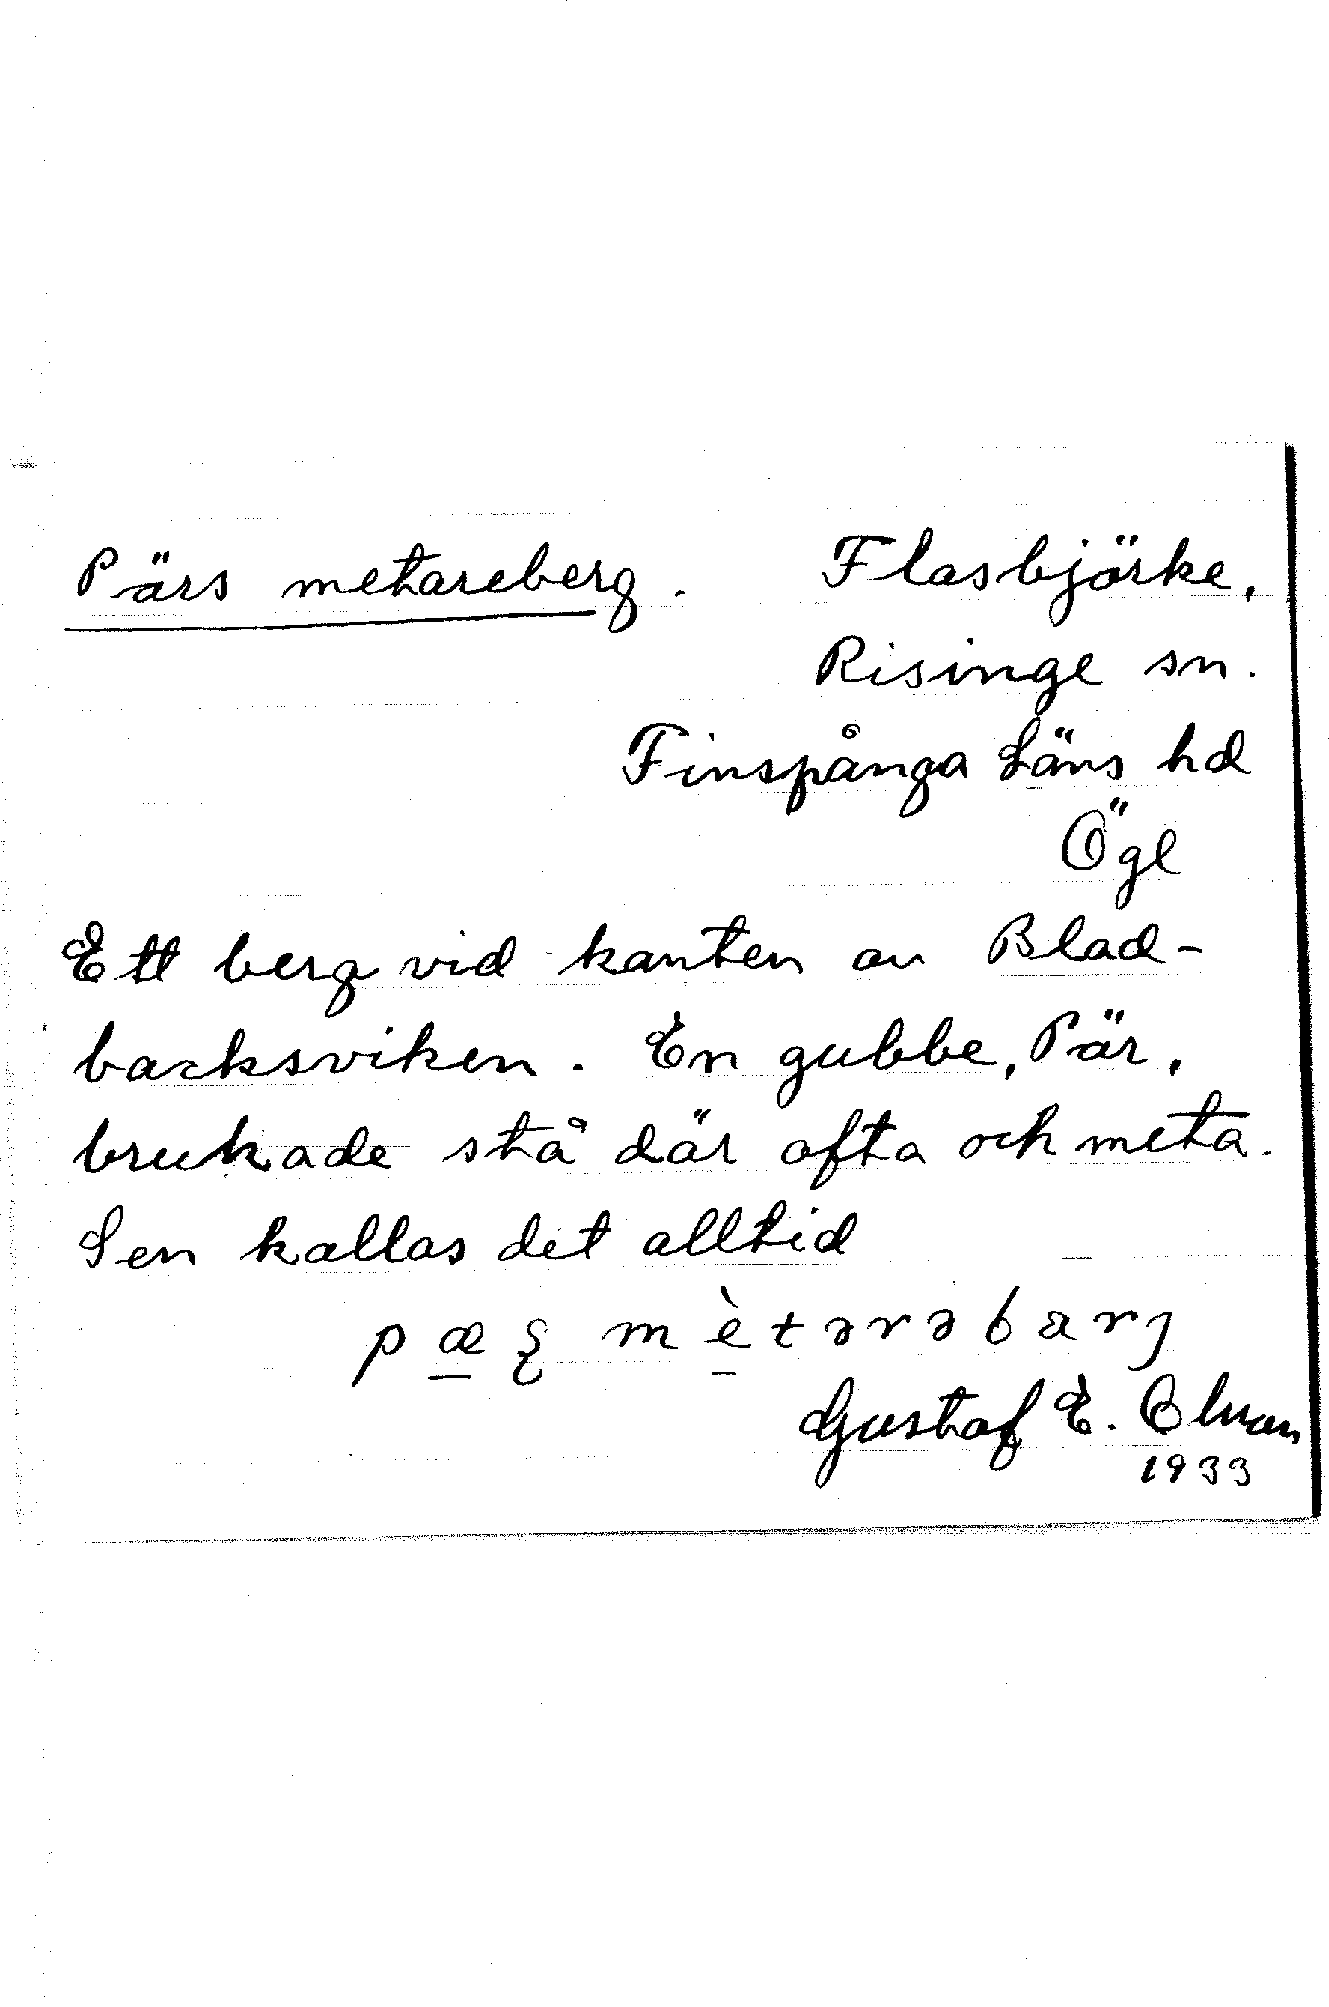 Pärs metareberg. Flasbjörke,
Risinge sn.
Finspånga Läns hd
Ögl
Ett berg vid kanten av Blad-
backsviken. En gubbe, Pär,
brukade stå där ofta och meta.
Sen kallas det alltid
mètərəbarj
Gustaf E.
1933